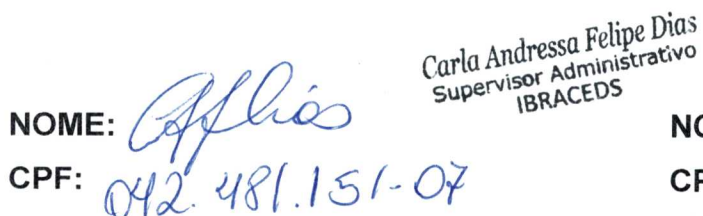 Carla Andressa Felipe Dias
Supervisor Administrativo
IBRACEDS
NOME:
NO
CPF: 042.481.151-07
CP